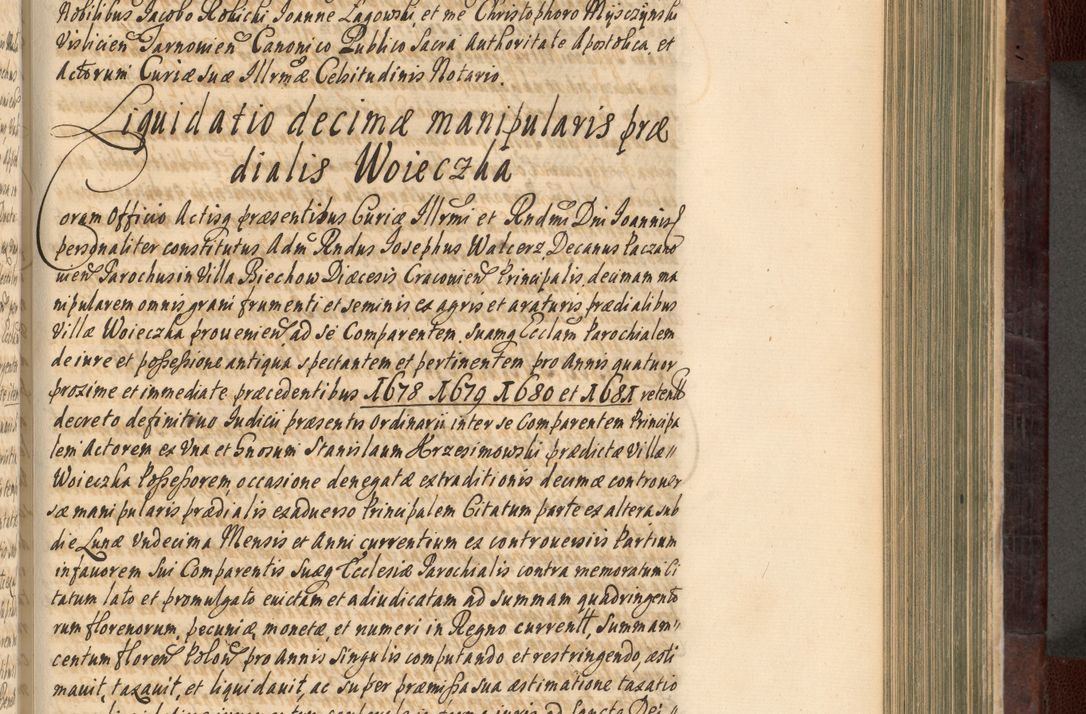 Nobilibus Jacobo Robicki Joanne Łagowski, et me Christophoro Mysczynski
Vislicien Tarnovien Canonico Publico Sacra Authoritate Apostolica, et
Actorum Curiæ suæ Illrmæ Celsitudinis Notario.
Liquidatio decimæ manipularis præ
dialis Woieczka
Coram Officio Actisq præsentibus Curiæ Illrmi et Rndmi Dni Joannis
personaliter constitutus Adm Rndus Josephus Walcerz, Decanus Paczano
vien Parochus in Villa Biechow Diæcesis Cracovien Principalis, decimam ma
nipularem omnis grani frumenti et seminis ex agris et araturis prædialibus
Villæ Woieczka prouenien ad se Comparentem, suamq Ecclam Parochialem
de iure et possessione antiqua spectantem et pertinentem pro Annis quatuor
proxime et immediate præcedentibus 1678 1679 1680 et 1681 retent
decreto definitiuo Iudicii præsentis Ordinarii inter se Comparentem Principa
lem Actorem ex Vna et Gnosum Stanislaum Krzesimowski prædictæ Villæ
Woieczka Possessorem, occasione denegatæ extraditionis decimæ controuer
sæ manipularis prædialis ex aduerso Principalem Citatum parte ex altera sub
die Lunæ Vndecima Mensis et Anni currentium ex controuersiis Partium
in fauorem sui Comparentis suæq Ecclesiæ Parochialis contra memoratum Ci
tatum lato et promulgato euictam et adiudicatam ad summam quadringento
rum florenorum, pecuniæ, monetæ, et numeri in Regno currentt, summam
centum floren Polon pro Annis singulis computando et restringendo, æsti
mauit, taxauit, et liquidauit, ac super præmissa sua æstimatione taxatio